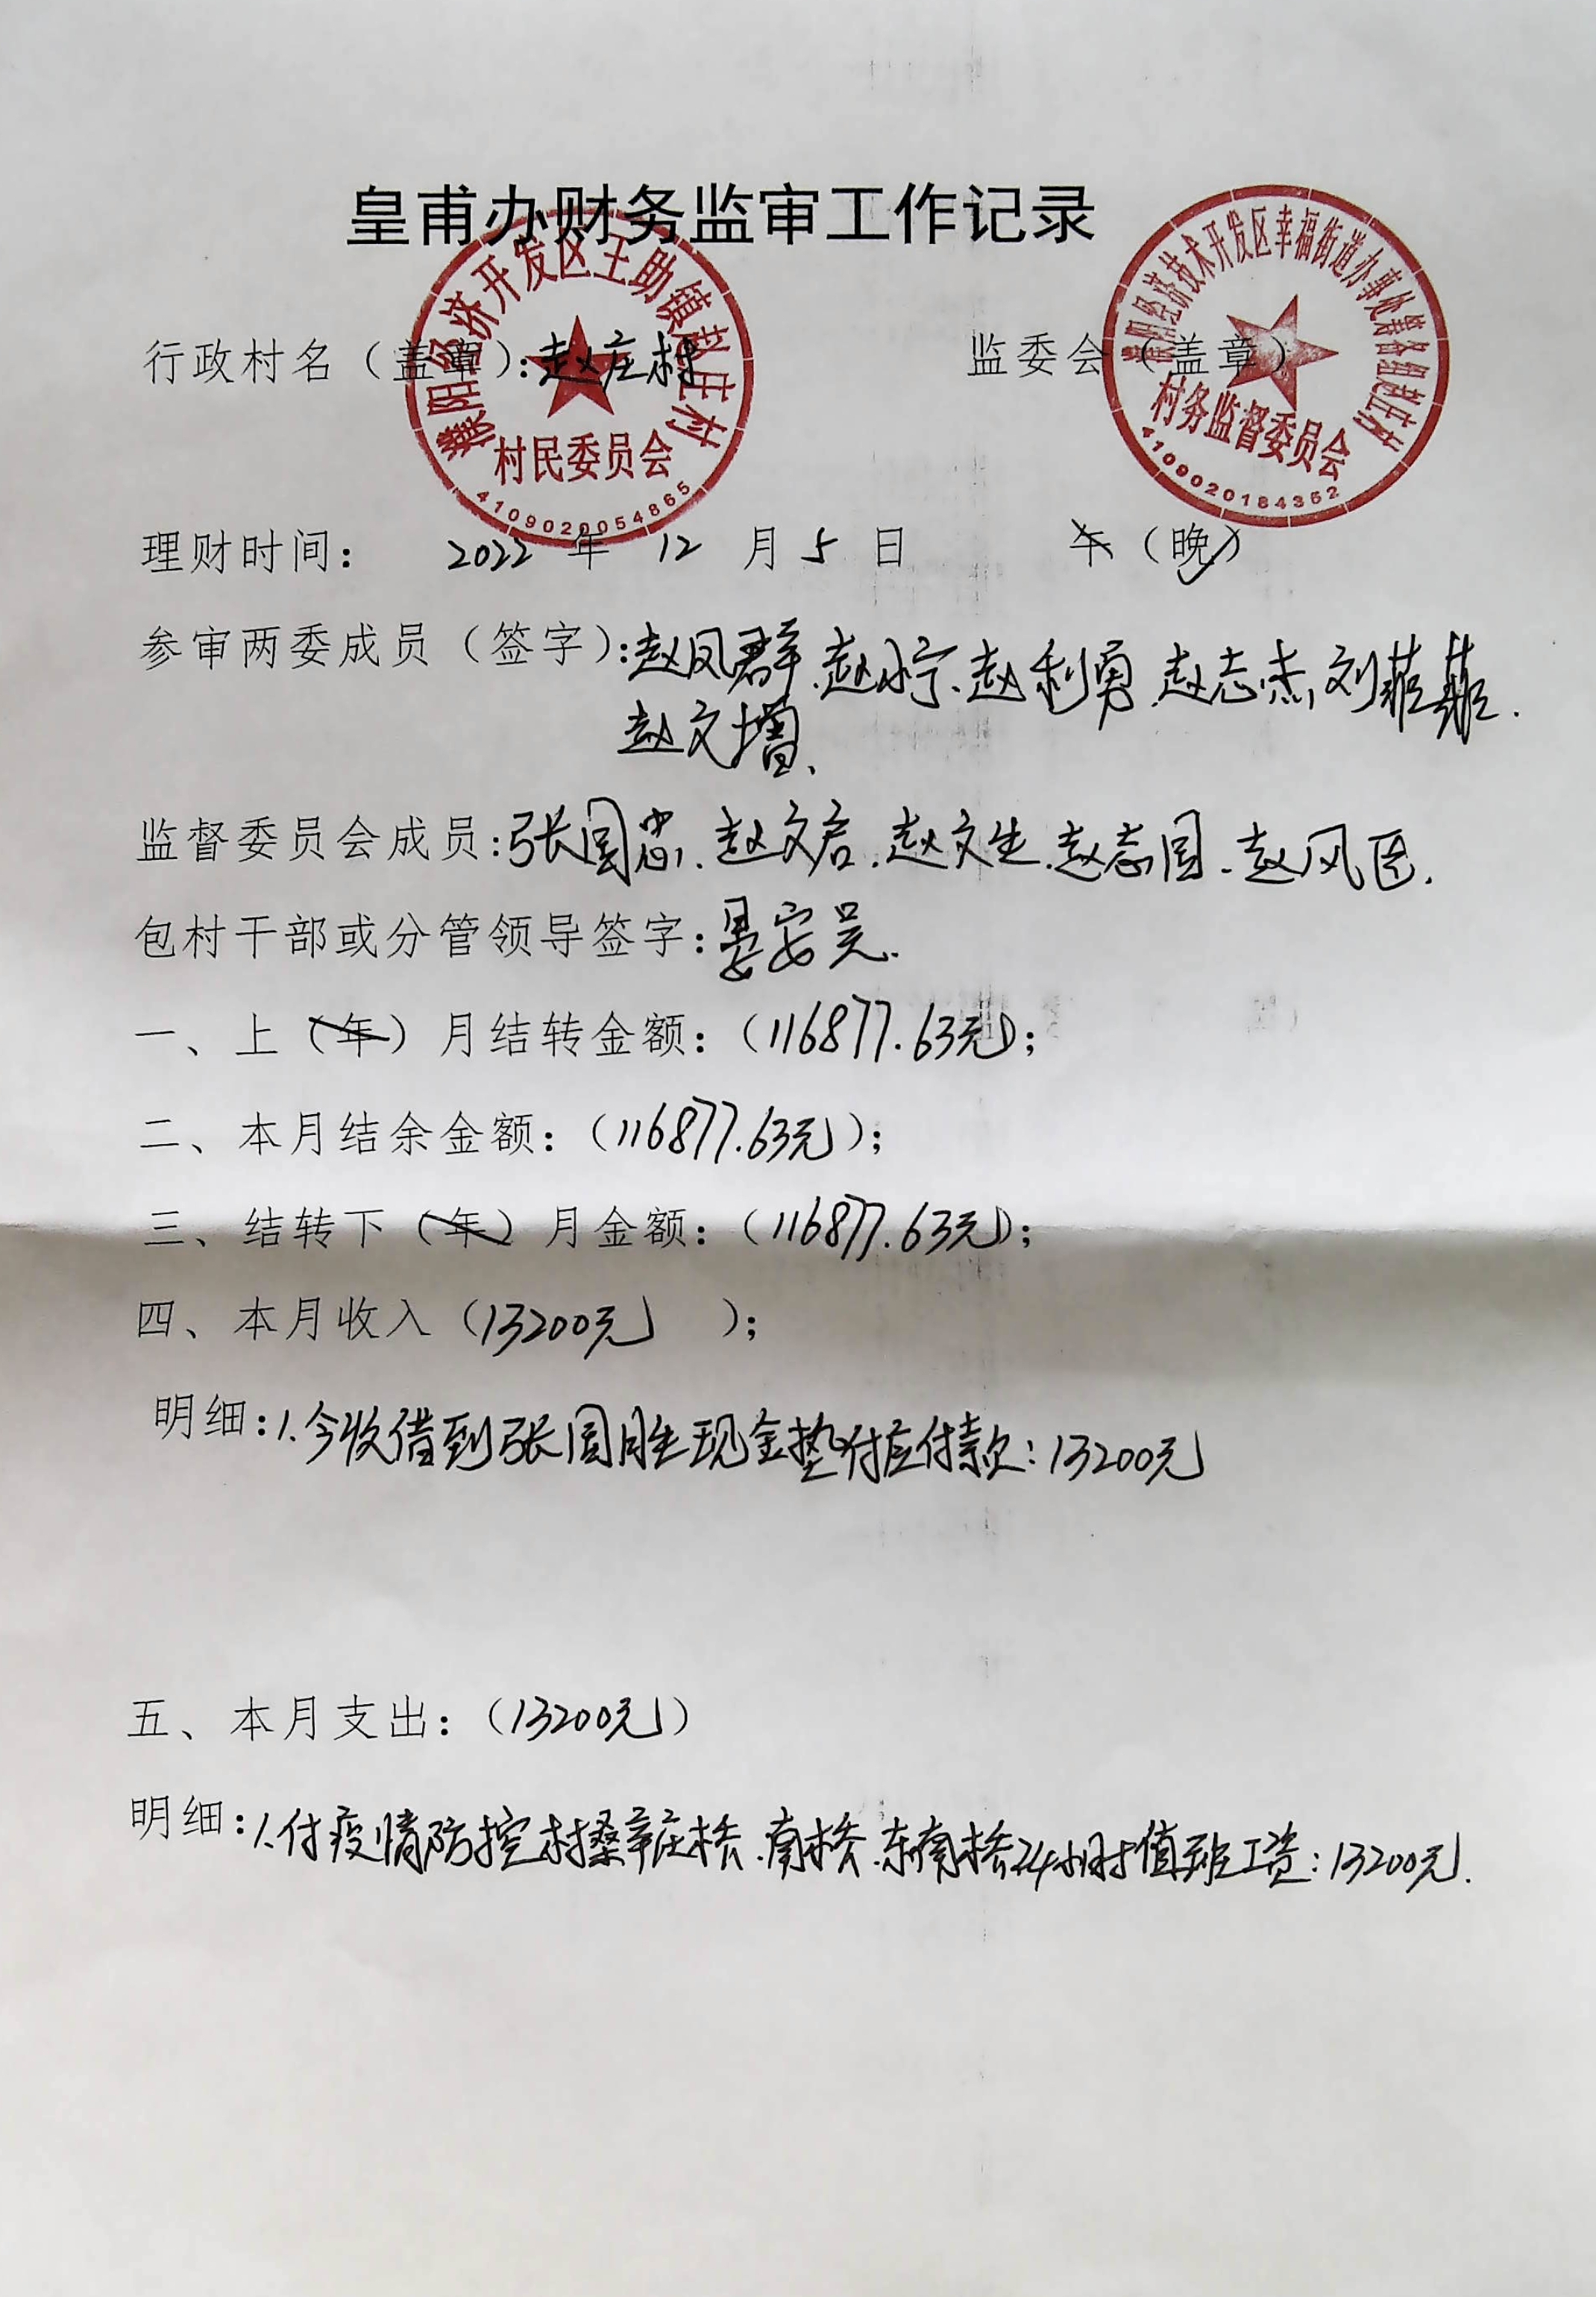 皇甫办财务监审工作记录
濮阳经济开发区王助镇赵庄村
村民委员会
4109020054865
濮阳经济技术开发区幸福街道办事处赵庄村
村务监督委员会
4109020184352
行政村名（盖章）：赵庄村 监委会（盖章）
理财时间： 2022 年 12 月 5 日 午（晚）
参审两委成员（签字）：赵凤群、赵小宁、赵利勇、赵志杰、刘菲菲.
赵文增、
监督委员会成员：张国忠、赵文启、赵文生、赵志国、赵风臣.
包村干部或分管领导签字：晏安吴.
一、上（年）月结转金额：（116877.63元）；
二、本月结余金额：（116877.63元）；
三、结转下（年）月金额：（116877.63元）；
四、本月收入（13200元 ）；
明细：1.今收借到张国胜现金垫付应付款：13200元
五、本月支出：（13200元）
明细：1.付疫情防控村桑辛庄桥、南桥、东南桥24小时值班工资：13200元.